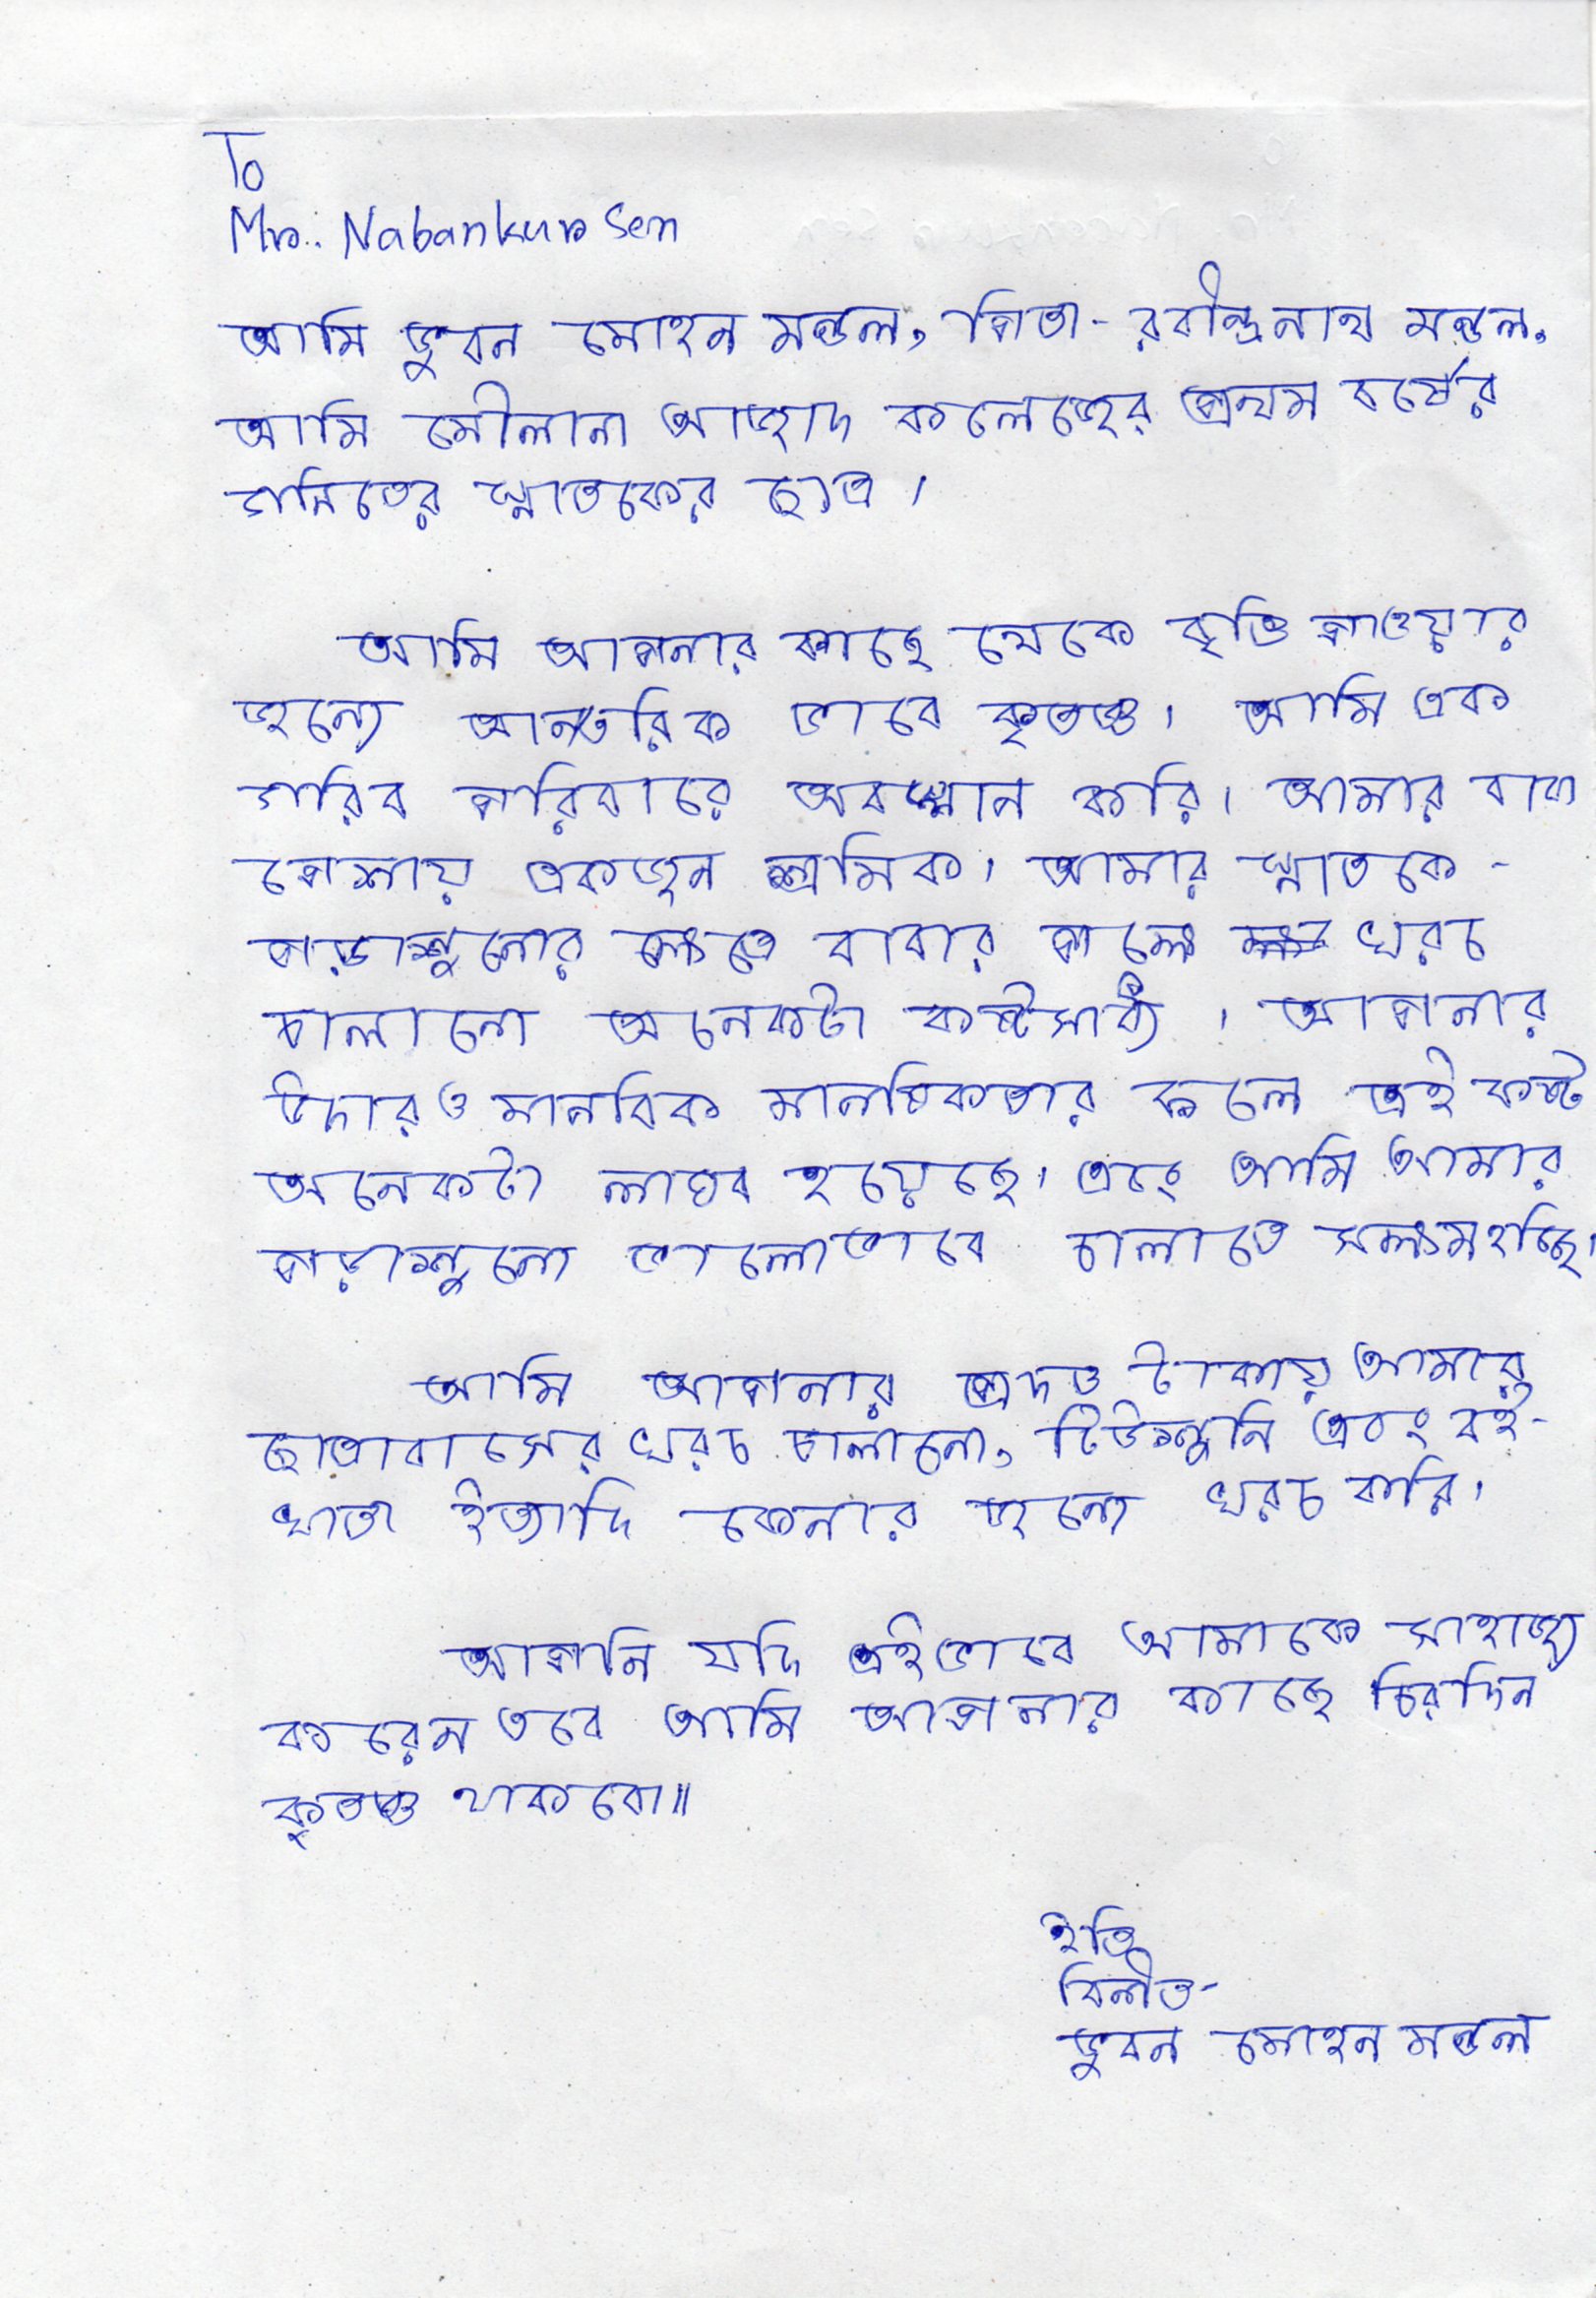 To
Mr.: Nabankur Sen
আমি ভুবন মোহন মন্ডল, পিতা - রবীন্দ্রনাথ মন্ডল,
আমি মৌলানা আজাদ কলেজের প্রথম বর্ষের
গনিতের স্নাতকের ছাত্র।
আমি আপনার কাছে থেকে বৃত্তি পাওয়ার
জন্যে আন্তরিক ভাবে কৃতজ্ঞ। আমি এক
গরিব পরিবারে অবস্থান করি। আমার বাবা
পেশায় একজন শ্রমিক। আমার স্নাতকে -
পড়াশুনোর ক্ষেত্রে বাবার পক্ষে খরচ
চালানো অনেকটা কষ্টসাধ্য। আপনার
উদার ও মানবিক মানষিকতার ফলে এই কষ্ট
অনেকটা লাঘব হয়েছে। এবং আমি আমার
পড়াশুনো ভালোভাবে চালাতে সক্ষম হচ্ছি।
আমি আপনার প্রদত্ত টাকায় আমার
ছাত্রাবাসের খরচ চালানো, টিউশুনি এবং বই-
খাতা ইত্যাদি কেনার জন্যে খরচ করি।
আপনি যদি এইভাবে আমাকে সাহায্য
করেন তবে আমি আপনার কাছে চিরদিন
কৃতজ্ঞ থাকবো॥
ইতি
বিনীত-
ভুবন মোহন মন্ডল